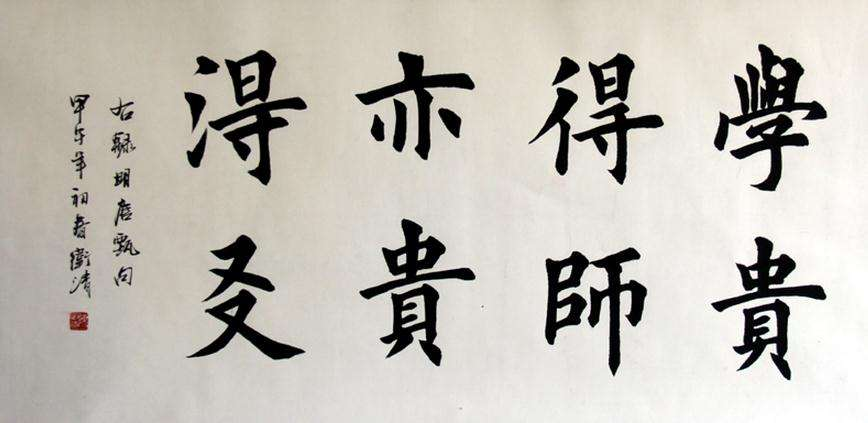 學貴
得師
亦貴
淂㕛
右録明唐甄句
甲午年初春衛清